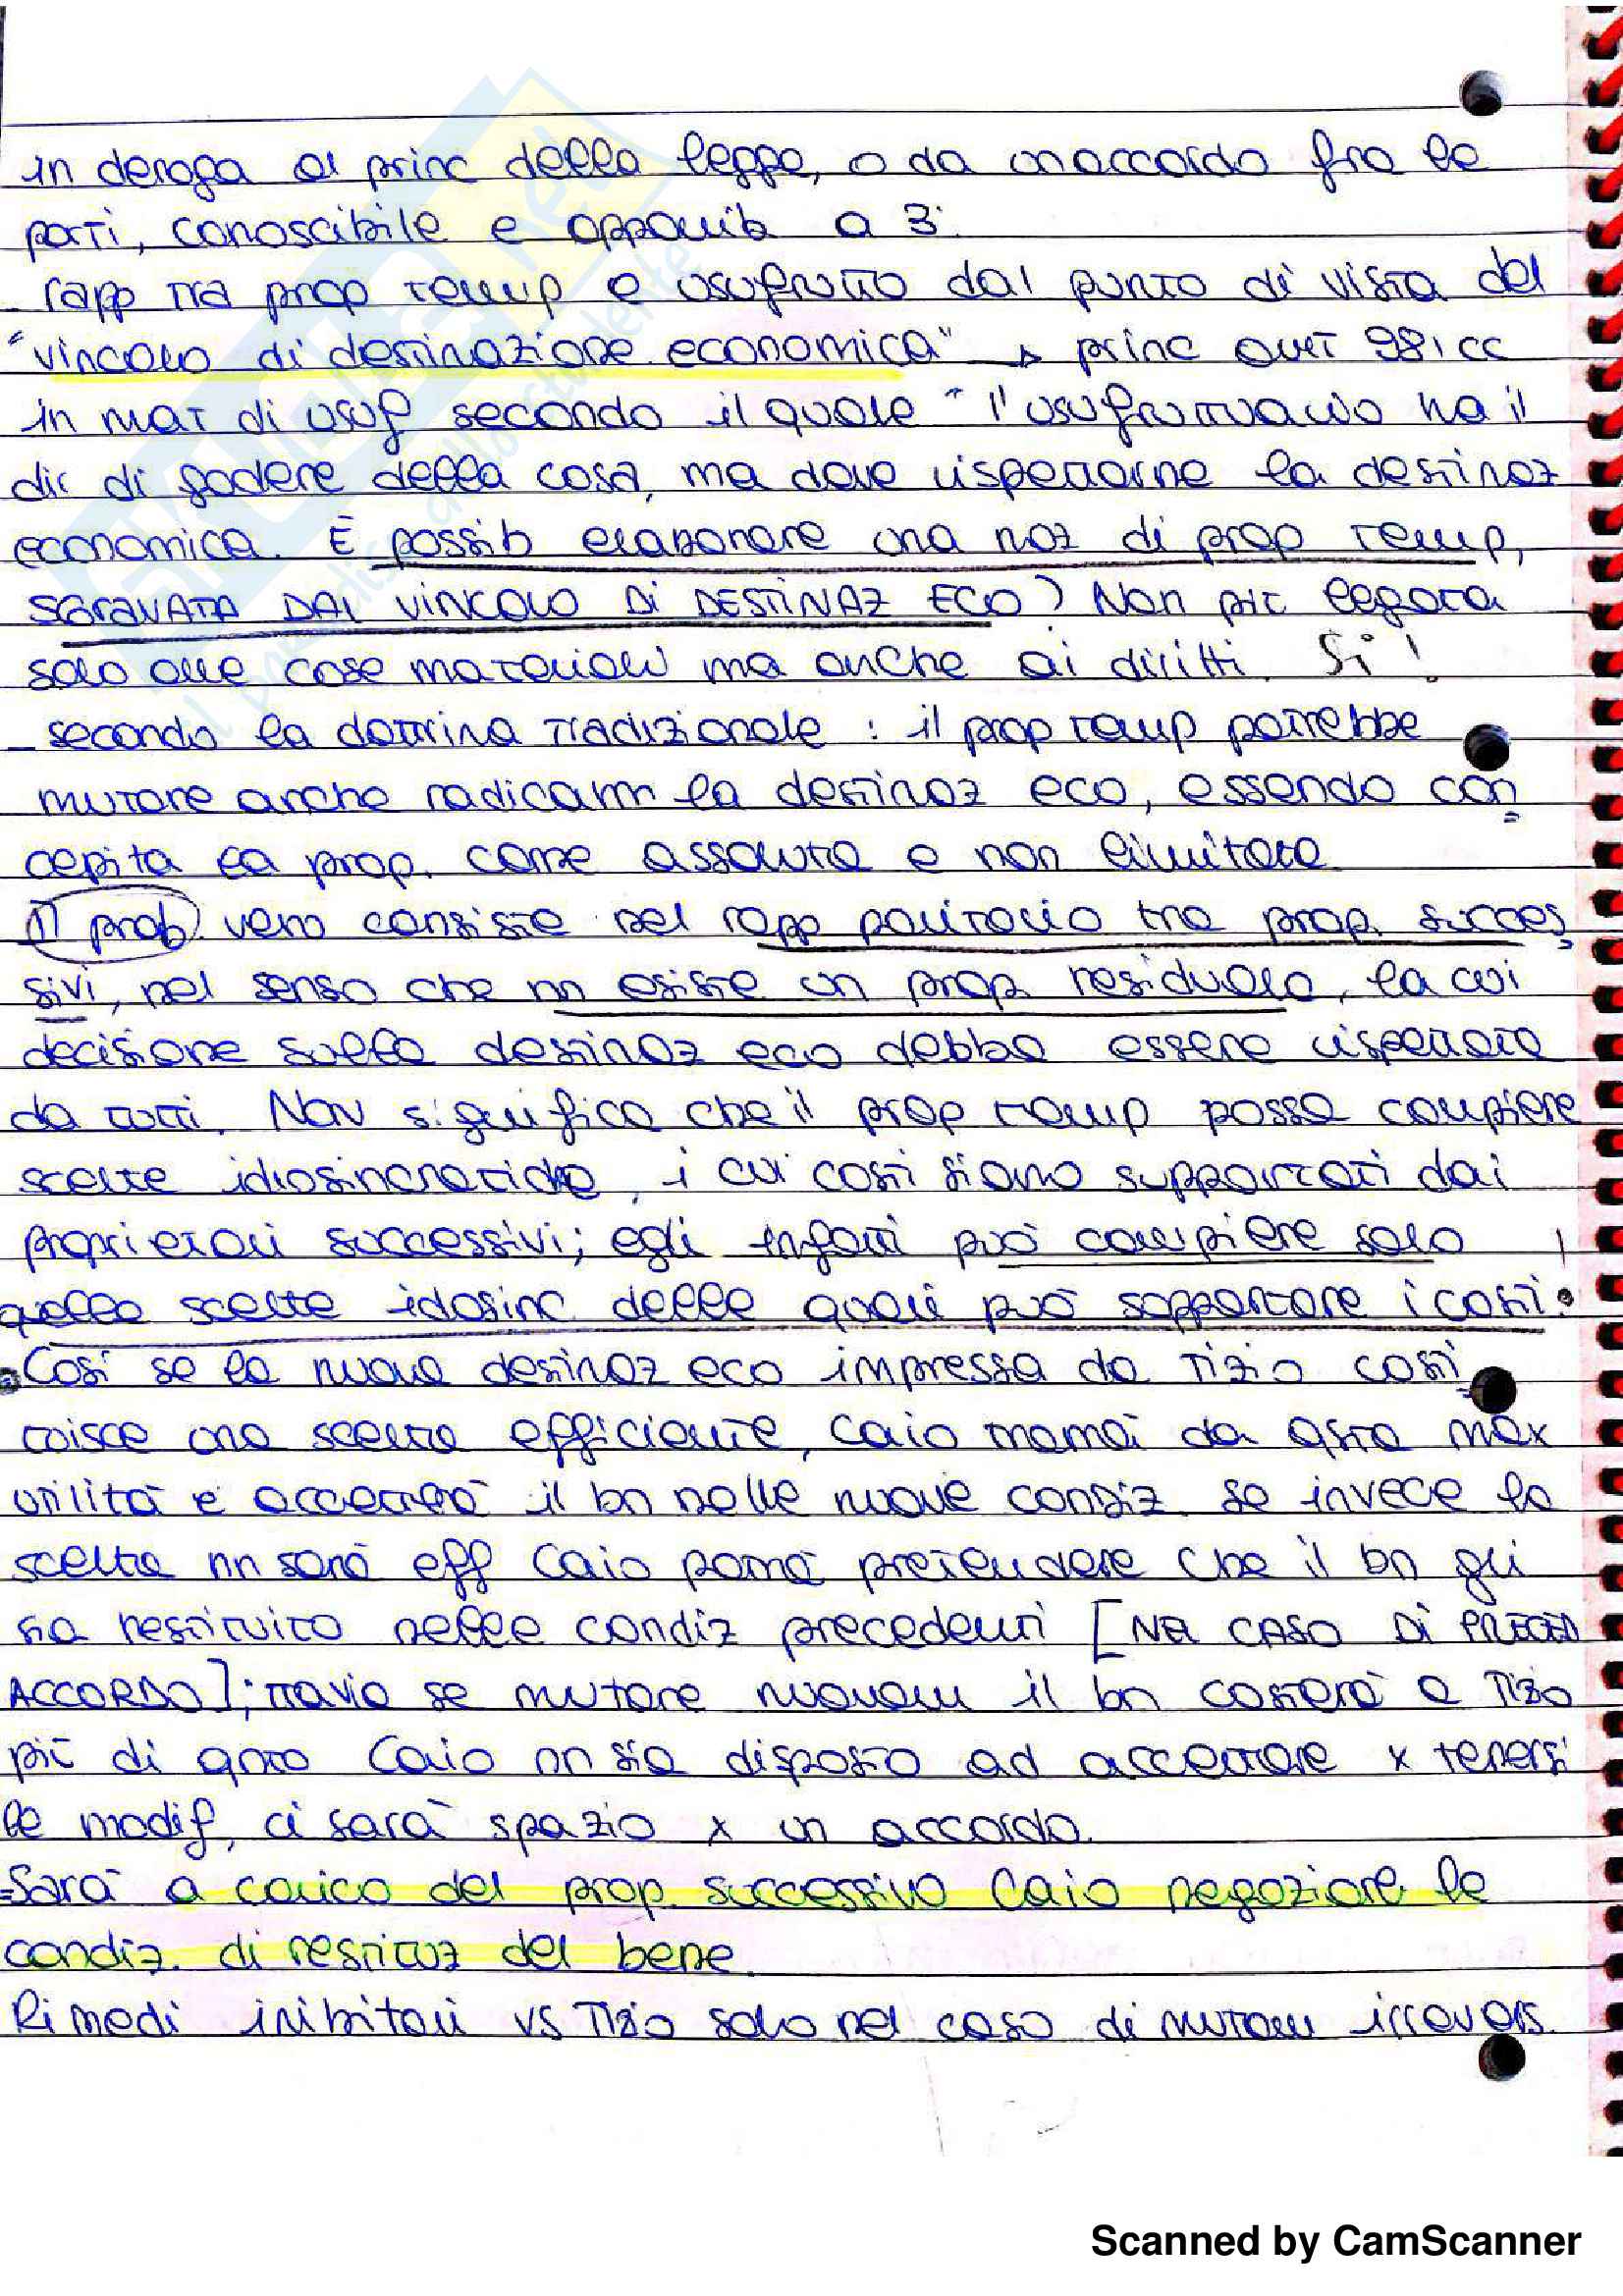 in deroga ai princ della legge, o da un accordo fra le
parti, conoscibile e opponib a 3i
- rapp tra prop temp e usufrutto dal punto di vista del
"vincolo di destinazione economica" → princ ex art 981 cc
in mat di usuf secondo il quale "l'usufruttuario ha il
dir di godere della cosa, ma deve rispettarne la destinaz
economica. È possib elaborare una noz di prop temp,
SGRAVATA DAL VINCOLO DI DESTINAZ ECO? Non più legata
solo alle cose materiali ma anche ai diritti. Si!
- secondo la dottrina tradizionale: il prop temp potrebbe
mutare anche radicalm la destinaz eco, essendo con
cepita la prop. come assoluta e non limitata
Il prob vero consiste nel rapp paritario tra prop. succes
sivi, nel senso che nn esiste un prop. residuale, la cui
decisione sulla destinaz eco debba essere rispettata
da tutti. Non significa che il prop temp possa compiere
scelte idiosincratiche, i cui costi siano supportati dai
proprietari successivi; egli infatti può compiere solo
quelle scelte idosinc delle quali può sopportare i costi!
Così se la nuova destinaz eco impressa da Tizio costi
tuisce una scelta efficiente, Caio trarrà da qsta max
utilità e accetterà il bn nelle nuove condiz. se invece la
scelta nn sarà eff Caio potrà pretendere che il bn gli
sia restituito nelle condiz precedenti [NEL CASO DI PRECED
ACCORDO]; ttavia se mutare nuovam il bn costerà a Tizio
più di qnto Caio nn sia disposto ad accettare x tenersi
le modif, ci sarà spazio x un accordo.
- Sarà a carico del prop. successivo Caio negoziare le
condiz. di restituz del bene.
Rimedi inibitori vs Tizio solo nel caso di mutam irrevers.
Scanned by CamScanner